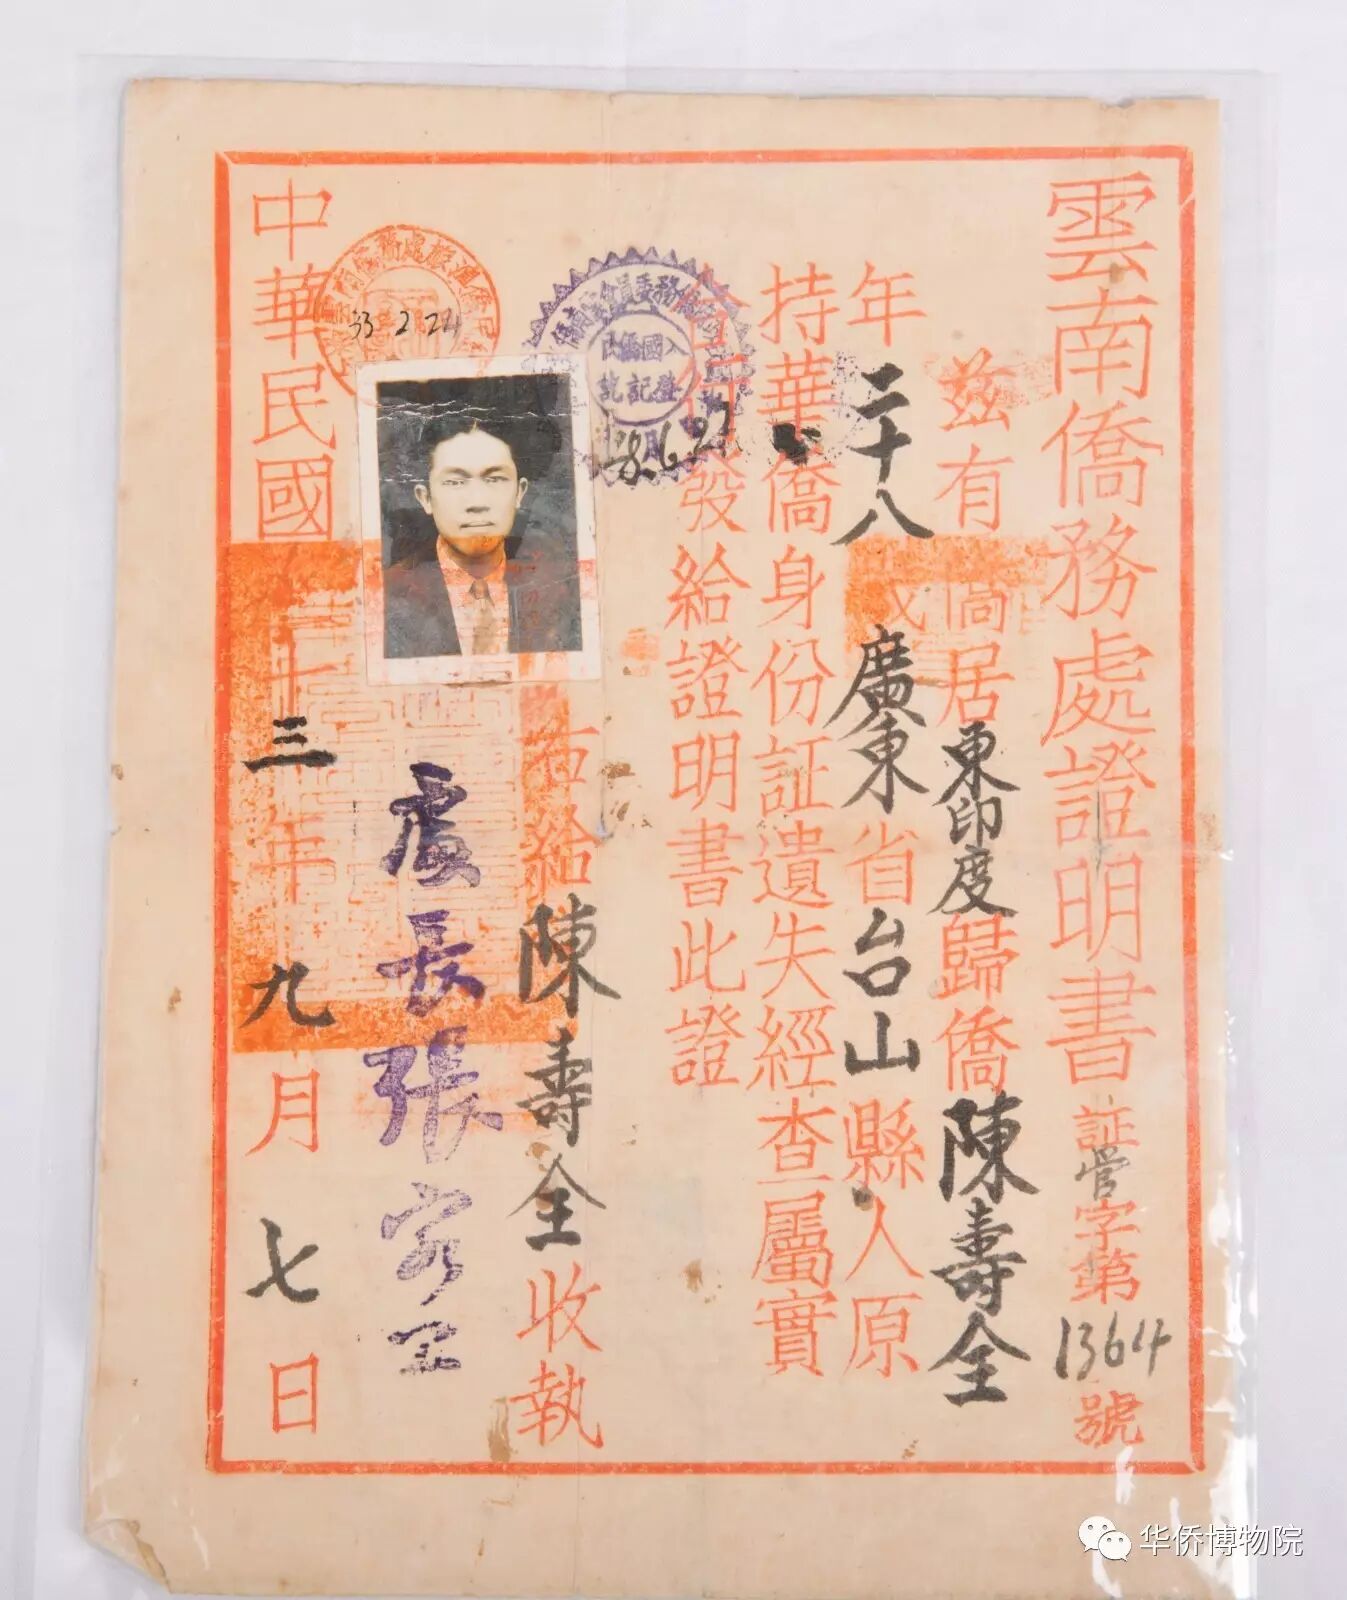 雲南僑務處證明書 証管字第1364號
茲有僑居東印度歸僑陳壽全
年二十八歲廣東省台山縣人原
持華僑身份証遺失經查屬實
合行發給證明書此證
右給陳壽全收執
處長張客公
中華民國三十三年九月七日
33 2 24
僑務委員會
入國僑民
登記訖
华侨博物院